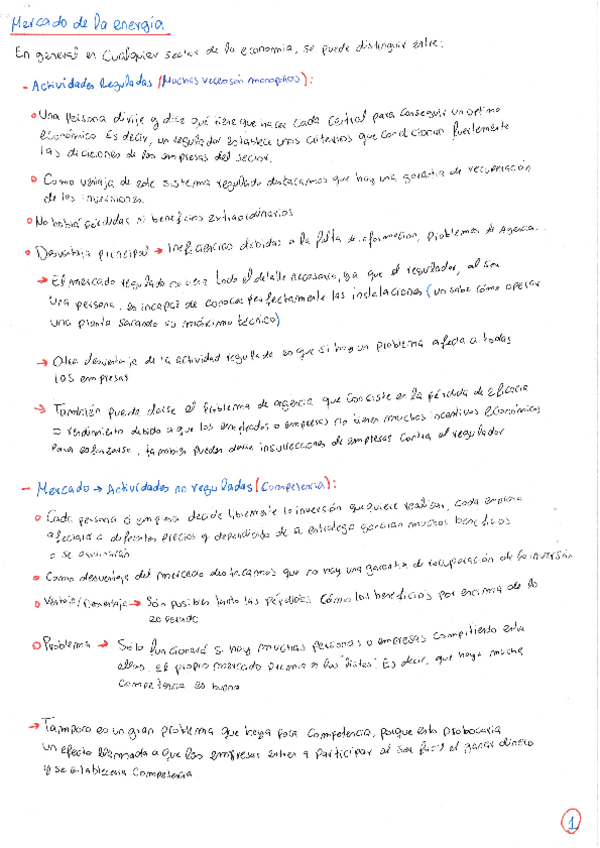 Mercado de la energía
En general en cualquier sector de la economía, se puede distinguir entre:
- Actividades Reguladas (Muchas veces son monopolios):
Una Persona dirije y dice qué tiene que hacer cada central para conseguir un optimo
económico. Es decir, un regulador establece unos criterios que condicionan fuertemente
las diciciones de las empresas del sector.
Como ventaja de este sistema regulado destacamos que hay una garantia de recuperación
de las inversiones.
No habrá pérdidas ni beneficios extraordinarios
Desventaja principal → Ineficiencias debidas a la falta de informacion, Problemas de Agencia...
→ El mercado regulado no ve todo el detalle necesario, ya que el regulador, al ser
una persona, es incapaz de conocer perfectamente las instalaciones (no sabe cómo operar
una planta sacando su máximo técnico)
→ Otra desventaja de la actividad regulada es que si hay un problema afecta a todas
las empresas
→ También puede darse el Problema de agencia que consiste en la pérdida de eficacia
= rendimiento debido a que los empleados o empresas no tienen muchos incentivos económicos
para esforzarse, tambien pueden darse insurrecciones de empresas contra el regulador
- Mercado → Actividades no reguladas (Competencia):
Cada persona o empresa decide libremente la inversión que quiere realizar, cada empresa
a diferentes precios y dependiendo de su estrategia ganarán muchos beneficios
o se arruinarán
Como desventaja del mercado destacamos que no hay una garantia de recuperación de la inversión
Ventaja/Desventaja → Son posibles tanto las pérdidas cómo los beneficios por encima de lo
Problema → Solo funcionará si hay muchas personas o empresas compitiendo entre
ellas. El propio mercado premia a los "listos". Es decir, que haya mucha
competencia es bueno
→ Tampoco es un gran problema que haya poca competencia, porque esto probocaria
un efecto llamada a que las empresas entren a Participar al ser facil el ganar dinero
y se estableceria competencia
1